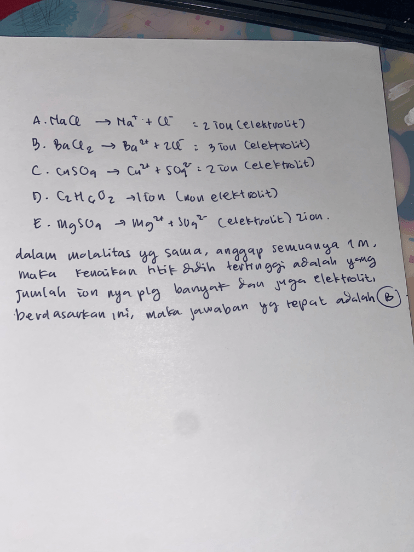 A. NaCl → Na⁺ + Cl⁻ : 2 ion (elektrolit)
B. BaCl₂ → Ba²⁺ + 2Cl⁻ : 3 ion (elektrolit)
C. CuSO₄ → Cu²⁺ + SO₄²⁻ : 2 ion (elektrolit)
D. C₂H₆O₂ → 1 ion (non elektrolit)
E. MgSO₄ → Mg²⁺ + SO₄²⁻ (elektrolit) 2 ion.
dalam molalitas yg sama, anggap semuanya 1 m,
maka kenaikan titik didih tertinggi adalah yang
jumlah ion nya plg banyak dan juga elektrolit,
berdasarkan ini, maka jawaban yg tepat adalah B